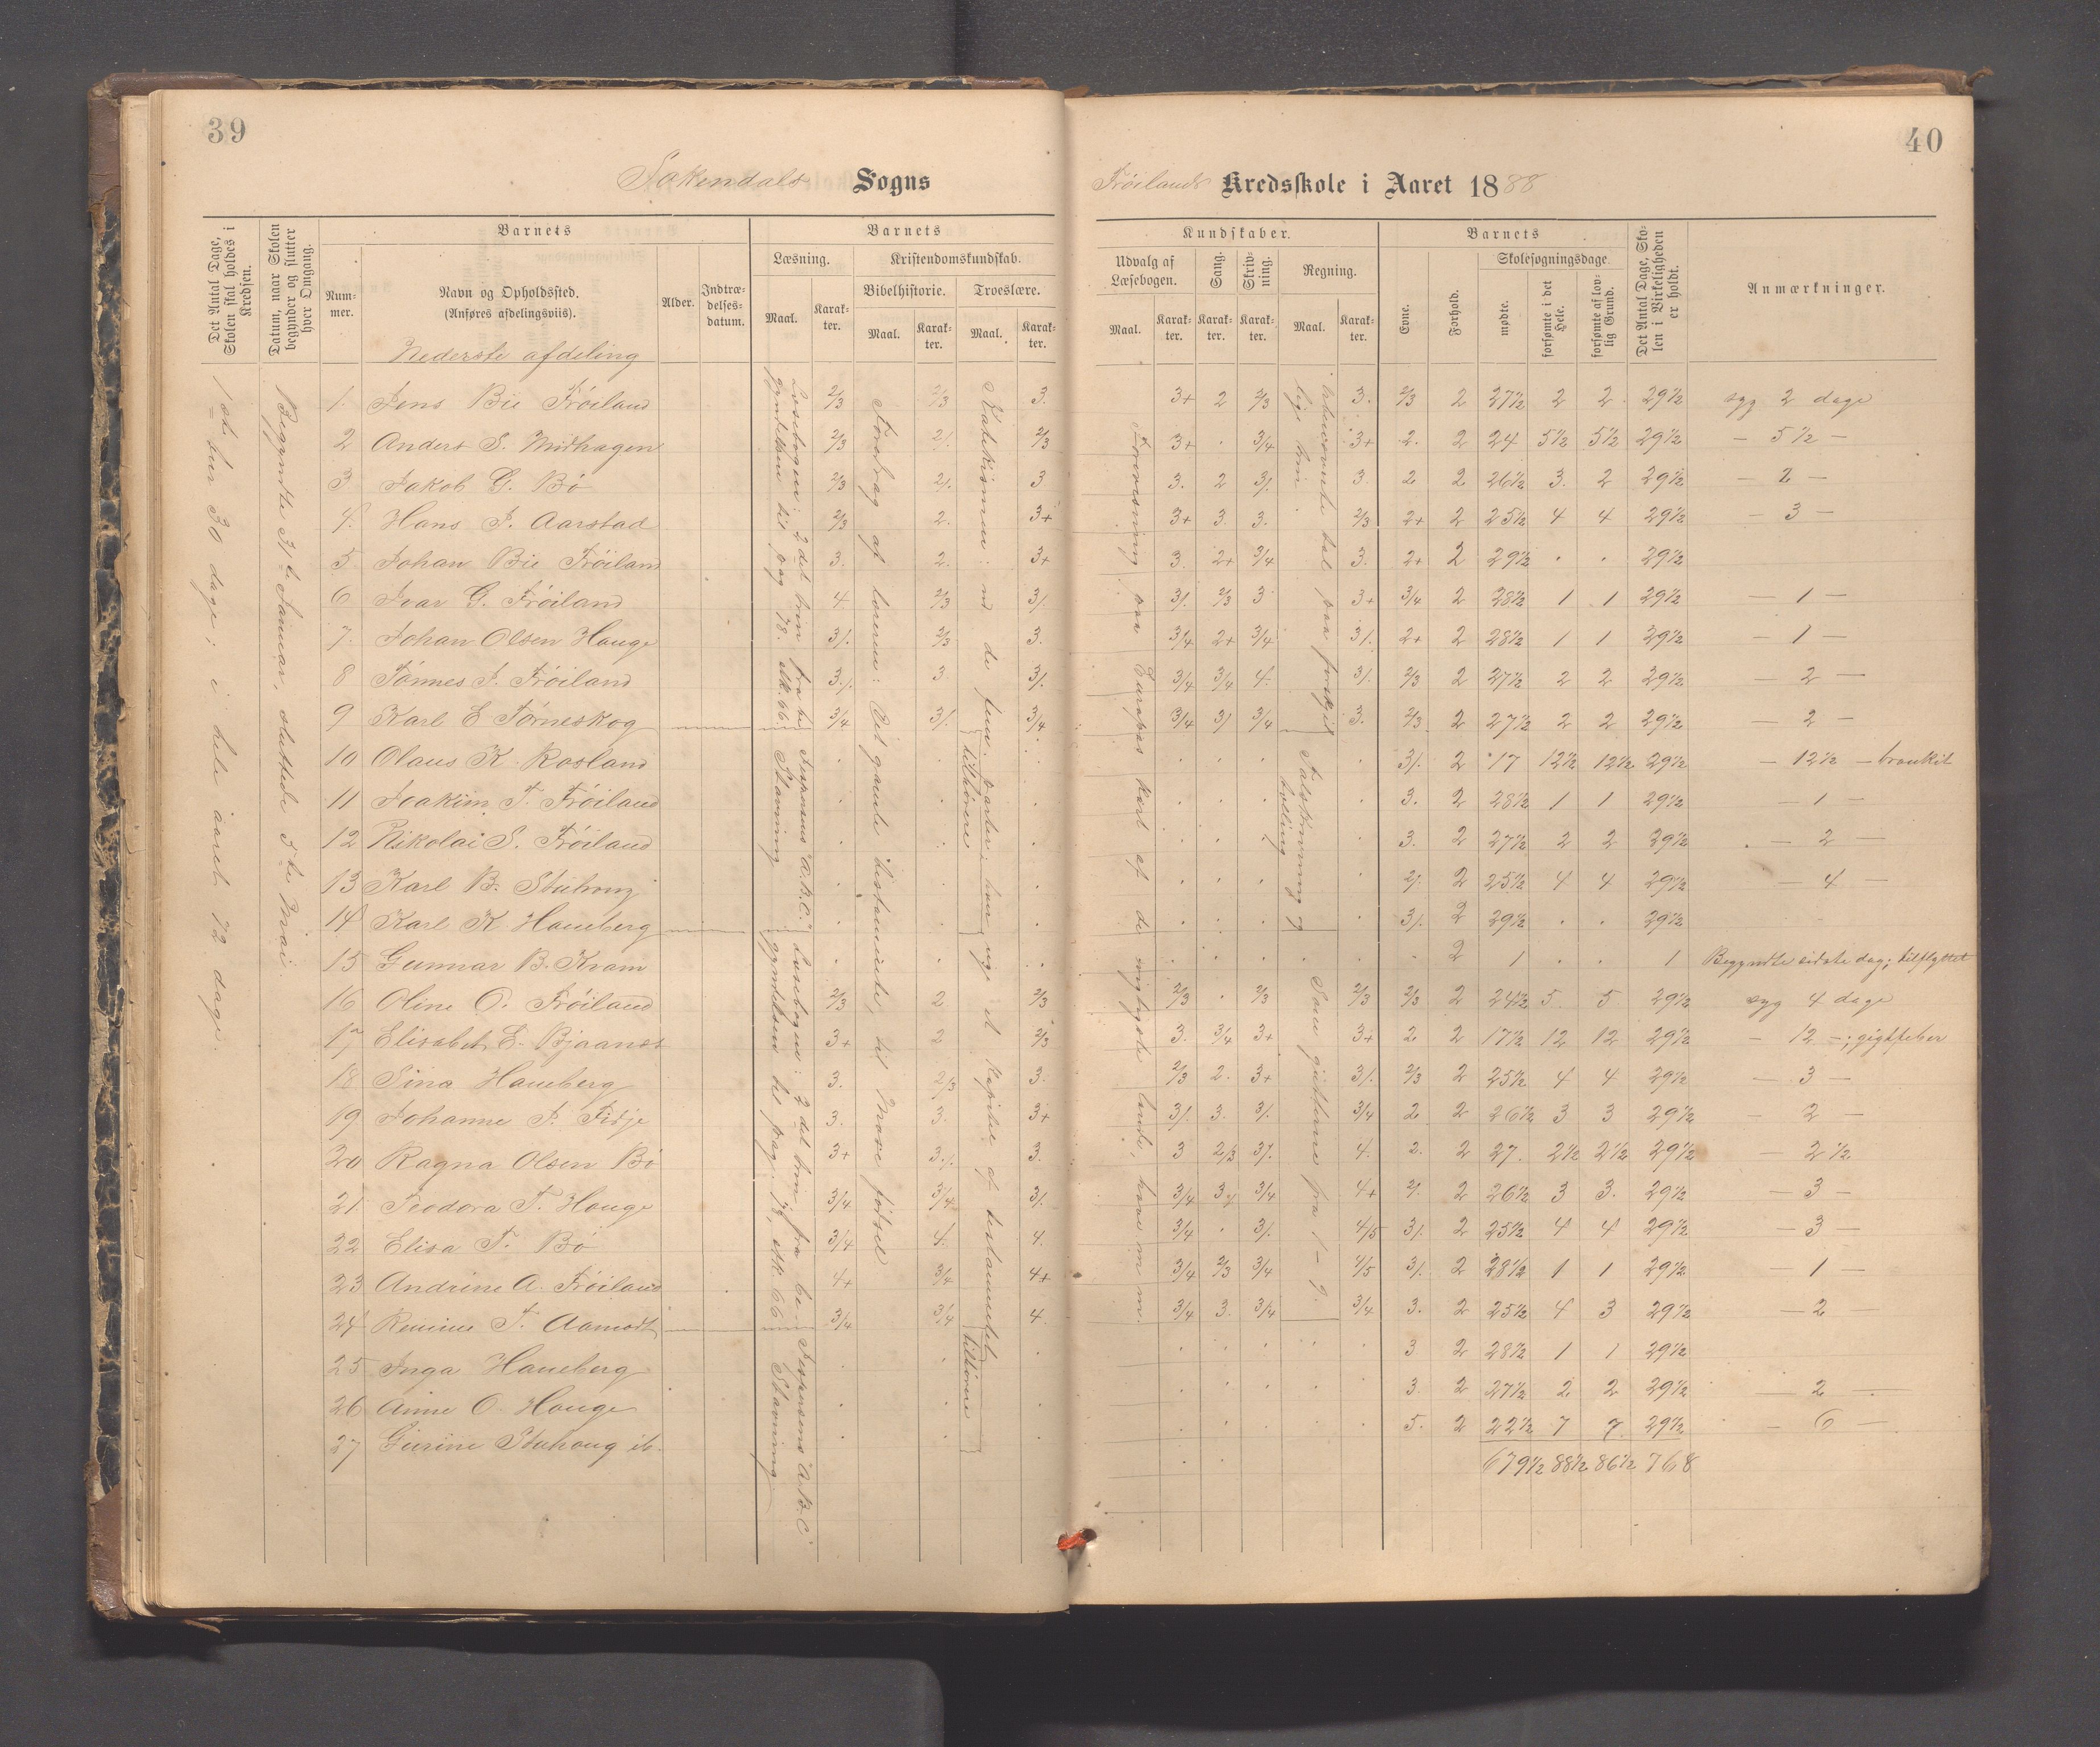 39
40
Sokendals Sogns
Frøilands Kredsskole i Aaret 1888
Det Antal Dage, Skolen skal holdes i Kredsen.
Datum, naar Skolen begynder og slutter hver Omgang.
Barnets
Num-mer.
Navn og Opholdssted. (Anføres afdelingsviis).
Alder.
Indtræ-delses-datum.
Barnets
Læsning.
Maal.
Karak-ter.
Kristendomskundskab.
Bibelhistorie.
Maal.
Karak-ter.
Troeslære.
Maal.
Karak-ter.
Kundskaber.
Udvalg af Læsebogen.
Maal.
Karak-ter.
Sang.
Karak-ter.
Skriv-ning.
Karak-ter.
Regning.
Maal.
Karak-ter.
Barnets
Evne.
Forhold.
Skolesøgningsdage.
mødte.
forsømte i det Hele.
forsømte af lov-lig Grund.
Det Antal Dage, Sko-len i Virkeligheden er holdt.
Anmærkninger.
Nederste afdeling
30 dage; i hele aaret 72 dage.
Begyndte 31te Januar, sluttede 5te Mai.
1. Jens Bie Frøiland 2/3 2/3 3. 3+ 2 2/3 3. 2/3 2 27½ 2 2 29½ syg 2 dage
2 Anders S. Midhagen 2/3 2/. 2/3 3+ . 3/4 3+ 2. 2 24 5½ 5½ 29½ — 5½ —
3 Jakob G. Bø 2/3 2/. 3 3. 2 3/. 3. 2 2 26½ 3. 2 29½ — 2 —
4. Hans J. Aarstad 2/3 2. 3+ 3+ 3. 3. 2/3 2+ 2 25½ 4 4 29½ — 3 —
5 Johan Bie Frøiland 3. 2. 3+ 3. 2+ 3/4 3. 2+ 2 29½ . . 29½
6 Ivar G. Frøiland 4 2/3 3/. 3/. 2/3 3 3+ 3/4 2 28½ 1 1 29½ — 1 —
7. Johan Olsen Hauge 3/. 2/3 3. 3/4 2+ 3/4 3/. 2+ 2 28½ 1 1 29½ — 1 —
8 Tønnes J. Frøiland 3/. 3 3/. 3/4 3/4 4. 3/. 2/3 2 27½ 2 2 29½ — 2 —
9 Karl E Tørneskog 3/4 3/. 3/4 3/4 3/ 3/4 3. 2/3 2 27½ 2 2 29½ — 2 —
10 Olaus K. Rosland 3/. 2 17 12½ 12½ 29½ — 12½ — bronkit
11 Joakim T. Frøiland 3. 2 28½ 1 1 29½ — 1 —
12 Nikolai S. Frøiland 3. 2 27½ 2 2 29½ — 2 —
13 Karl B. Stuhoug 2/. 2 25½ 4 4 29½ — 4 —
14 Karl K. Haneberg 3/. 2 29½ . . 29½
15 Gunnar B. Kram 2 1 . . 1 Begyndte sidste dag; tilflyttet
16 Oline O. Frøiland 2/3 2 2/3 2/3 . 2/3 2/3 2/3 2 24½ 5. 5 29½ syg 4 dage
17 Elisabet E. Bjaanes 3+ 2 2/3 3. 3/4 3+ 3+ 2 2 17½ 12 12 29½ — 12 —; gigtfeber
18 Sina Haneberg 3. 2/3 3. 2/3 2. 3+ 3/. 2/3 2 25½ 4 4 29½ — 3 —
19 Johanne P. Fidje 3. 3. 3+ 3/. 3. 3/. 3/4 2 2 26½ 3 3 29½ — 2 —
20 Ragna Olsen Bø 3+ 3/. 3. 3 2/3 3/. 4. 2. 2 27. 2½ 2½ 29½ — 2½
21 Teodora T. Hauge 3/4 3/4 3/. 3/4 3/ 3/4 4+ 2/. 2 26½ 3 3. 29½ — 3 —
22 Elisa T. Bø 3/4 4. 4. 3/4 . 3/. 4/5 3/. 2 25½ 4 4 29½ — 3 —
23 Andrine A. Frøiland 4+ 3/4 4+ 3/4 2/3 3/4 4/5 3/. 2 28½ 1 1 29½ — 1 —
24 T. Aamodt 3/4 3/4 4 3/4 3. 3/4 3/4 3. 2 25½ 4 3 29½ — 2 —
25 Inga Haneberg 3 2 28½ 1 1 29½
26 Anne O. Hauge 3. 2 27½ 2 2 29½ — 2 —
27 Gurine Stuhoug 5. 2 22½ 7 7 29½ — 6 —
679½ 88½ 86½ 768
Læsebogen: 2det trin fra be-gyndelsen til pag 78. stk. 66.
Jespersens "A.B.C." Stavning
Læsebogen: 2det trin fra be-gyndelsen til pag. 78, stk 66
Jespersens A.B.C. Stavning
Foredrag af læreren: Det gamle testamente, til Mose fødsel
tilhørere
tilhørere
Forevisning paa Europas kart af de vigtigste lande, have m m.
Ubenævnte tal paa forskjel lige trin.
Talskrivning og tælling
Små gjættane fra 1 — 9.